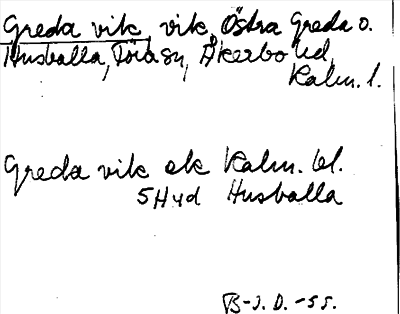 Greda vik, vik, Östra Greda o.
Husvalla, Föra sn, Åkerbo hd,
Kalm. l.
Greda vik ek Kalm. bl.
5 Hyd Husvalla
B-J. D. -55.